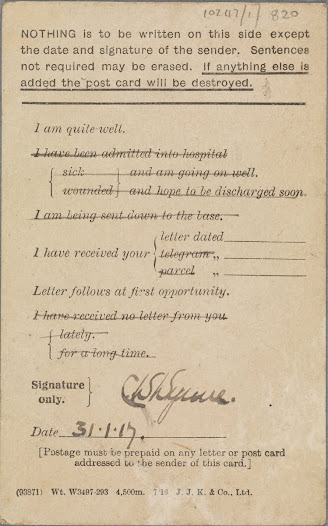 102147/1/820
NOTHING is to be written on this side except
the date and signature of the sender. Sentences
not required may be erased. If anything else is
added the post card will be destroyed.
I am quite well.
I have been admitted into hospital
sick } and am going on well.
wounded } and hope to be discharged soon.
I am being sent down to the base.
letter dated
I have received your { telegram „
parcel „
Letter follows at first opportunity.
I have received no letter from you
{ lately.
for a long time.
Signature
only. }
Date 31·1·17.
[Postage must be prepaid on any letter or post card
addressed to the sender of this card.]
(93871) Wt. W3497-293 4,500m. 7/16 J. J. K. & Co., Ltd.